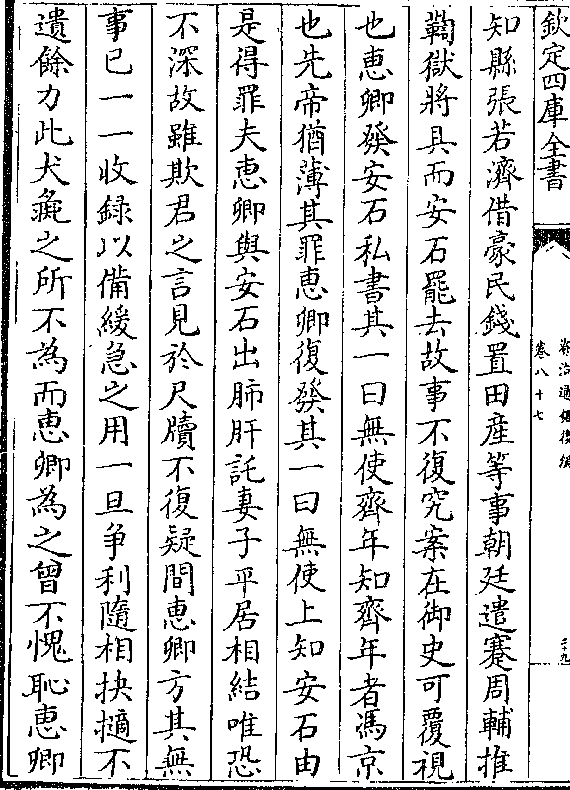 欽定四庫全書
資治通鑑後編
卷八十七
知縣張若濟借豪民錢置田産等事朝廷遣蹇周輔推
鞫獄將具而安石罷去故事不復究案在御史可覆視
也惠卿發安石私書其一曰無使齊年知齊年者馮京
也先帝猶薄其罪惠卿復發其一曰無使上知安石由
是得罪夫惠卿與安石出肺肝託妻子平居相結唯恐
不深故雖欺君之言見於尺牘不復疑間惠卿方其無
事已一一收録以備緩急之用一旦争利隨相抉擿不
遺餘力此犬彘之所不為而惠卿為之曾不愧恥惠卿